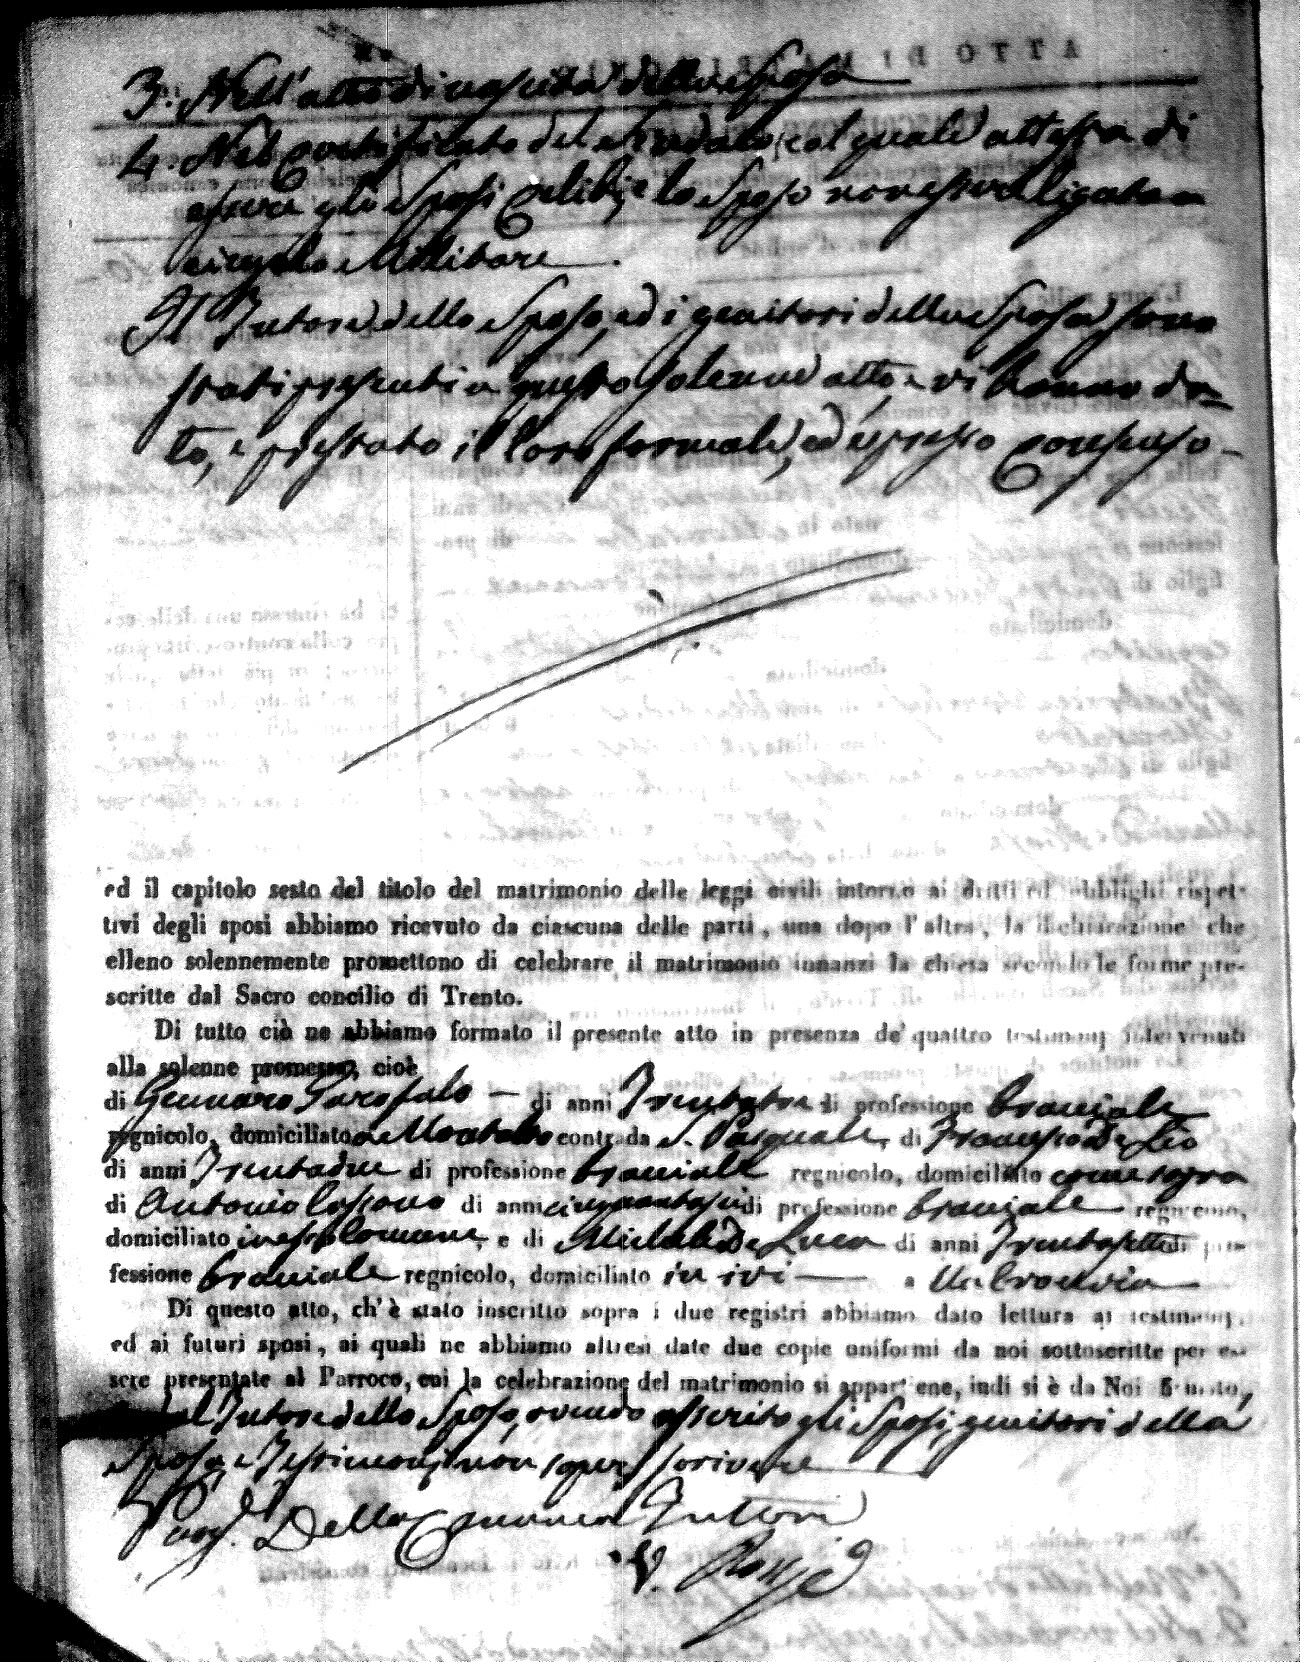 3. Nell'atto di nascita della Sposa
4. Nel Certificato del Sindaco, col quale attesta di
essere gli Sposi Celibi, e lo Sposo non essere ligato a
vincolo Militare.
Il Tutore dello Sposo, ed i genitori della Sposa sono
stati presenti a questo solenne atto, e vi hanno da=
to, e prestato il loro formale, ed espresso consenso_
ed il capitolo sesto del titolo del matrimonio delle leggi civili intorno ai dritti ed obblighi rispet-
tivi degli sposi abbiamo ricevuto da ciascuna delle parti, una dopo l'altra, la dichiarazione che
elleno solennemente promettono di celebrare il matrimonio innanzi la chiesa secondo le forme pre-
scritte dal Sacro concilio di Trento.
Di tutto ciò ne abbiamo formato il presente atto in presenza de' quattro testimonj intervenuti
alla solenne promessa, cioè
di Gennaro Garofalo — di anni di professione Bracciale
regnicolo, domiciliato a Montalto contrada S. Pasquale, di Francesco De Leo
di anni Trentadue di professione bracciale regnicolo, domiciliato come sopra
di Antonio di anni cinquantasei di professione bracciale regnicolo,
domiciliato in e di Michele De Luca di anni Trentasette di pro-
fessione bracciale regnicolo, domiciliato in ivi — a
Di questo atto, ch'è stato inscritto sopra i due registri abbiamo dato lettura ai testimonj,
ed ai futuri sposi, ai quali ne abbiamo altresì date due copie uniformi da noi sottoscritte per es-
sere presentate al Parroco, cui la celebrazione del matrimonio si appartiene, indi si è da Noi firmato,
dal Tutore dello Sposo, avendo asserito gli Sposi, genitori della
Sposa, e Testimonj non saper scrivere
Della Tutore
V.